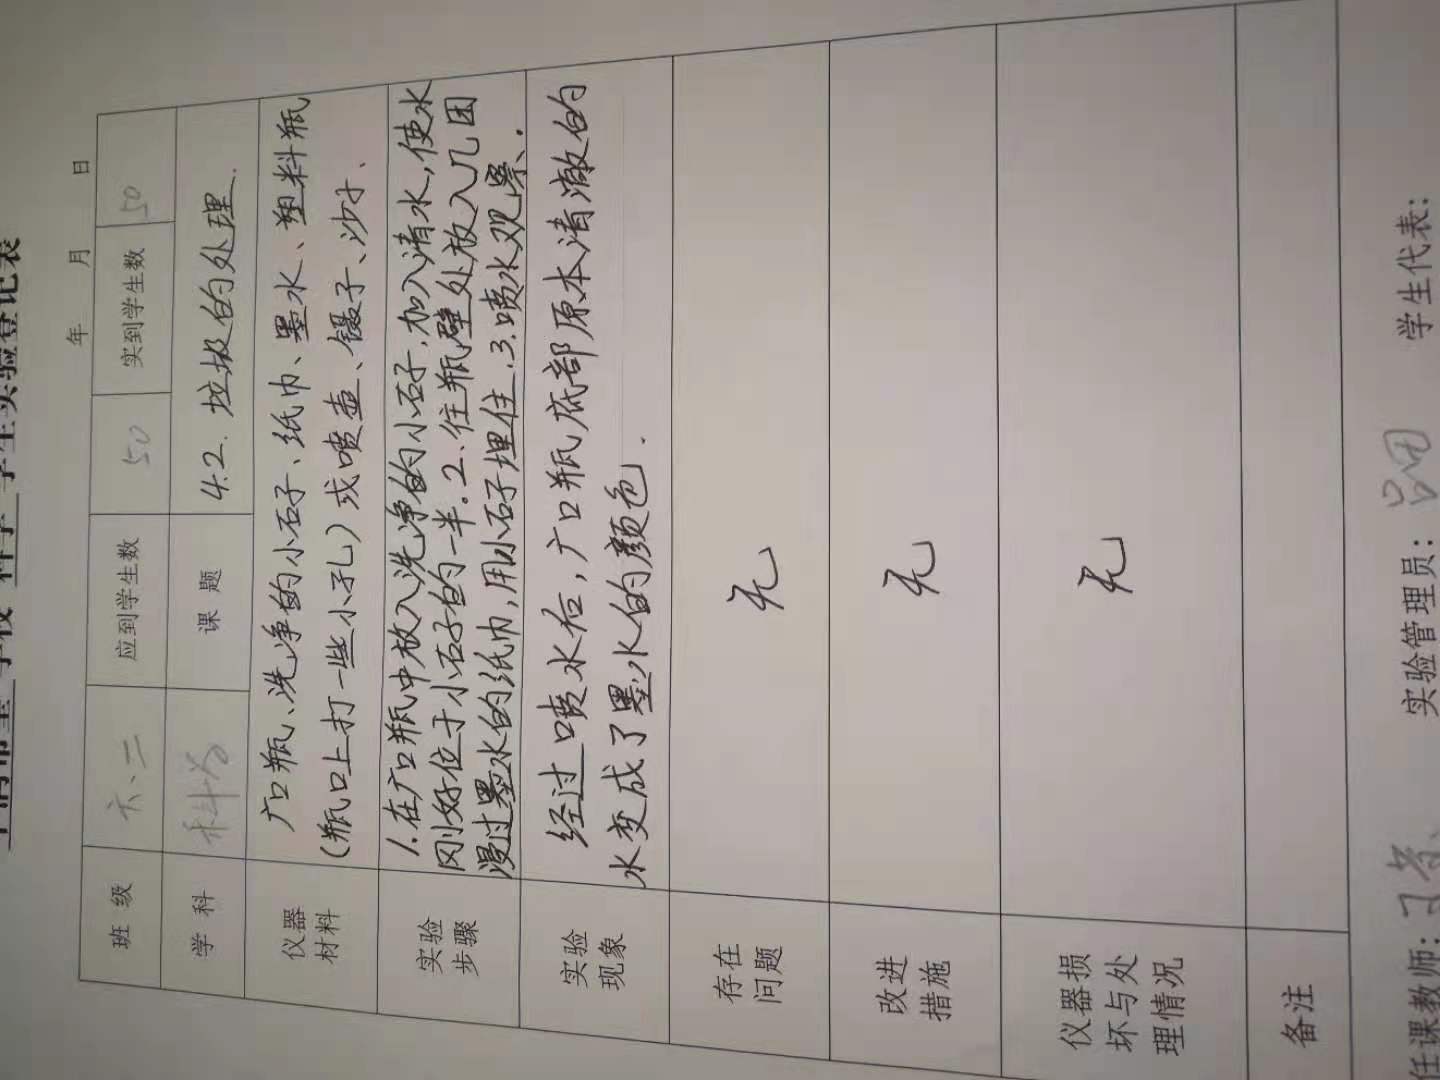 科学 学生实验登记表
年 月 日
班 级 六、二 应到学生数 50 实到学生数 50
学 科 科学 课 题 4.2. 垃圾的处理.
仪器
材料
广口瓶、洗净的小石子、纸巾、墨水、塑料瓶
(瓶口上打一些小孔)或喷壶、镊子、沙子、
实验
步骤
1.在广口瓶中放入洗净的小石子,加入清水,使水
刚好位于小石子的一半.2.往瓶壁处放入几团
浸过墨水的纸巾,用小石子埋住.3.喷水观察.
实验
现象
经过喷水后,广口瓶底部原本清澈的
水变成了墨水的颜色.
存在
问题
无
改进
措施
无
仪器损
坏与处
理情况
无
备注
任课教师: 实验管理员: 学生代表: